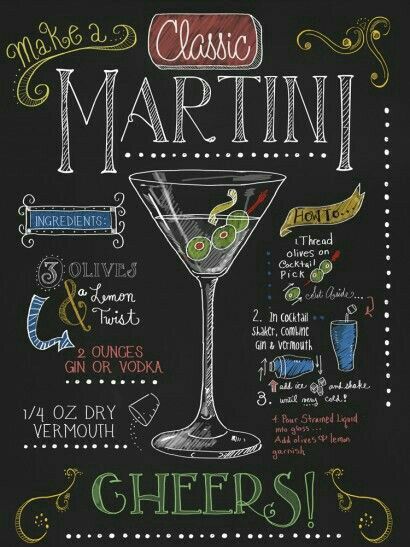 Make a
Classic
MARTINI
INGREDIENTS:
3 OLIVES
& a Lemon
Twist
2 OUNCES
GIN OR VODKA
1/4 OZ DRY
VERMOUTH
HOW TO...
1. Thread
olives on
Cocktail
Pick
Set Aside...
2. In Cocktail
Shaker, Combine
Gin & Vermouth
add ice and shake
3. until very cold!
4. Pour Strained Liquid
into glass...
Add olives & lemon
garnish
CHEERS!